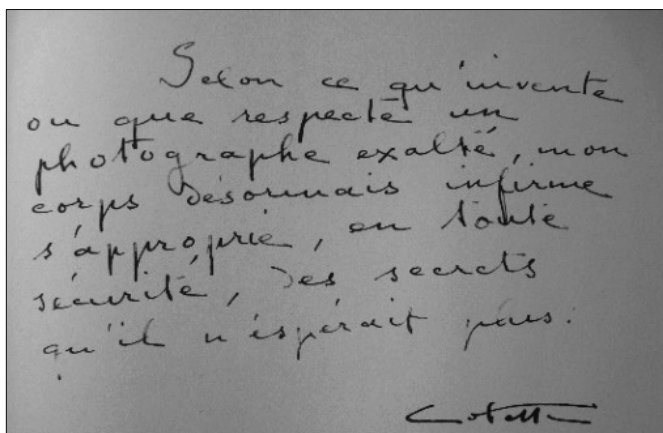 Selon ce qu'invente
ou que respecte un
photographe exalté, mon
corps désormais infirme
s'approprie, en toute
sécurité, des secrets
qu'il n'espérait plus.
Colette